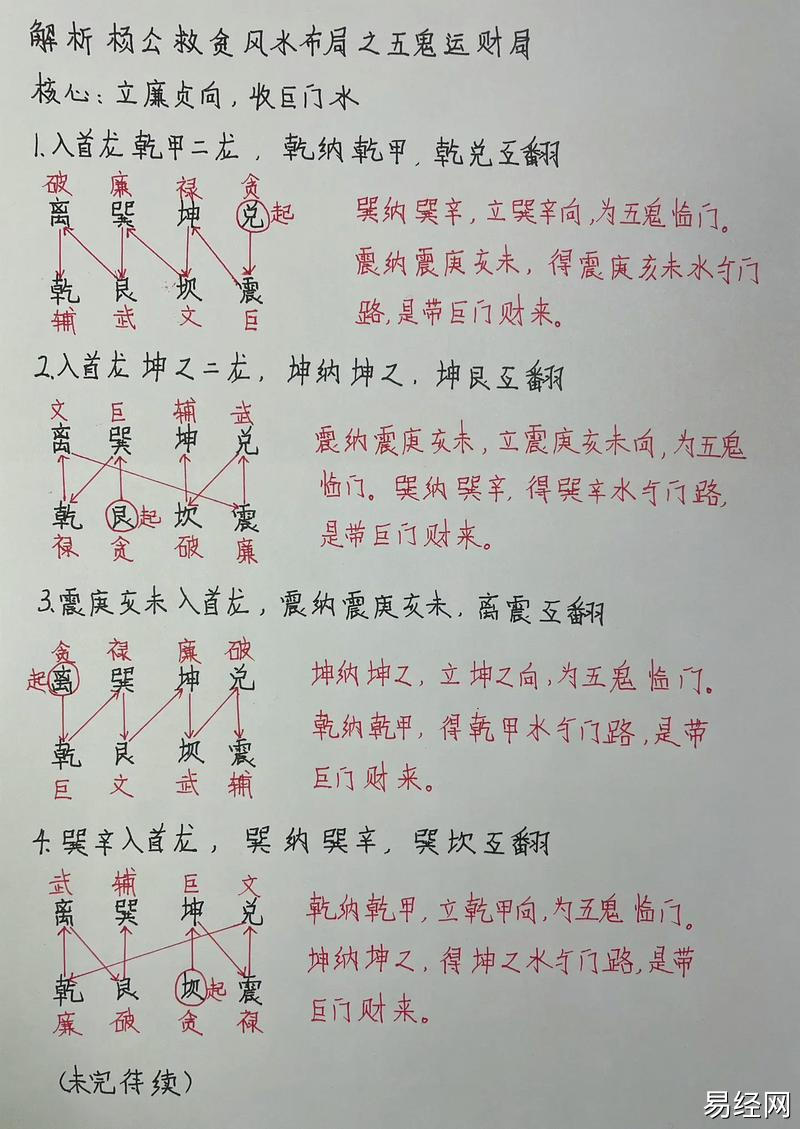 解析杨公救贫风水布局之五鬼运财局
核心：立廉贞向，收巨门水
1.入首龙乾甲二龙，乾纳乾甲，乾兑互翻
破 廉 禄 贪
离 巽 坤 兑起
乾 艮 坎 震
辅 武 文 巨
巽纳巽辛，立巽辛向，为五鬼临门。
震纳震庚亥未，得震庚亥未水与门
路，是带巨门财来。
2.入首龙坤乙二龙，坤纳坤乙，坤艮互翻
文 巨 辅 武
离 巽 坤 兑
乾 艮起 坎 震
禄 贪 破 廉
震纳震庚亥未，立震庚亥未向，为五鬼
临门。巽纳巽辛，得巽辛水与门路，
是带巨门财来。
3.震庚亥未入首龙，震纳震庚亥未，离震互翻
贪 禄 廉 破
起离 巽 坤 兑
乾 艮 坎 震
巨 文 武 辅
坤纳坤乙，立坤乙向，为五鬼临门。
乾纳乾甲，得乾甲水与门路，是带
巨门财来。
4.巽辛入首龙，巽纳巽辛，巽坎互翻
武 辅 巨 文
离 巽 坤 兑
乾 艮 坎起 震
廉 破 贪 禄
乾纳乾甲，立乾甲向，为五鬼临门。
坤纳坤乙，得坤乙水与门路，是带
巨门财来。
（未完待续）
易经网